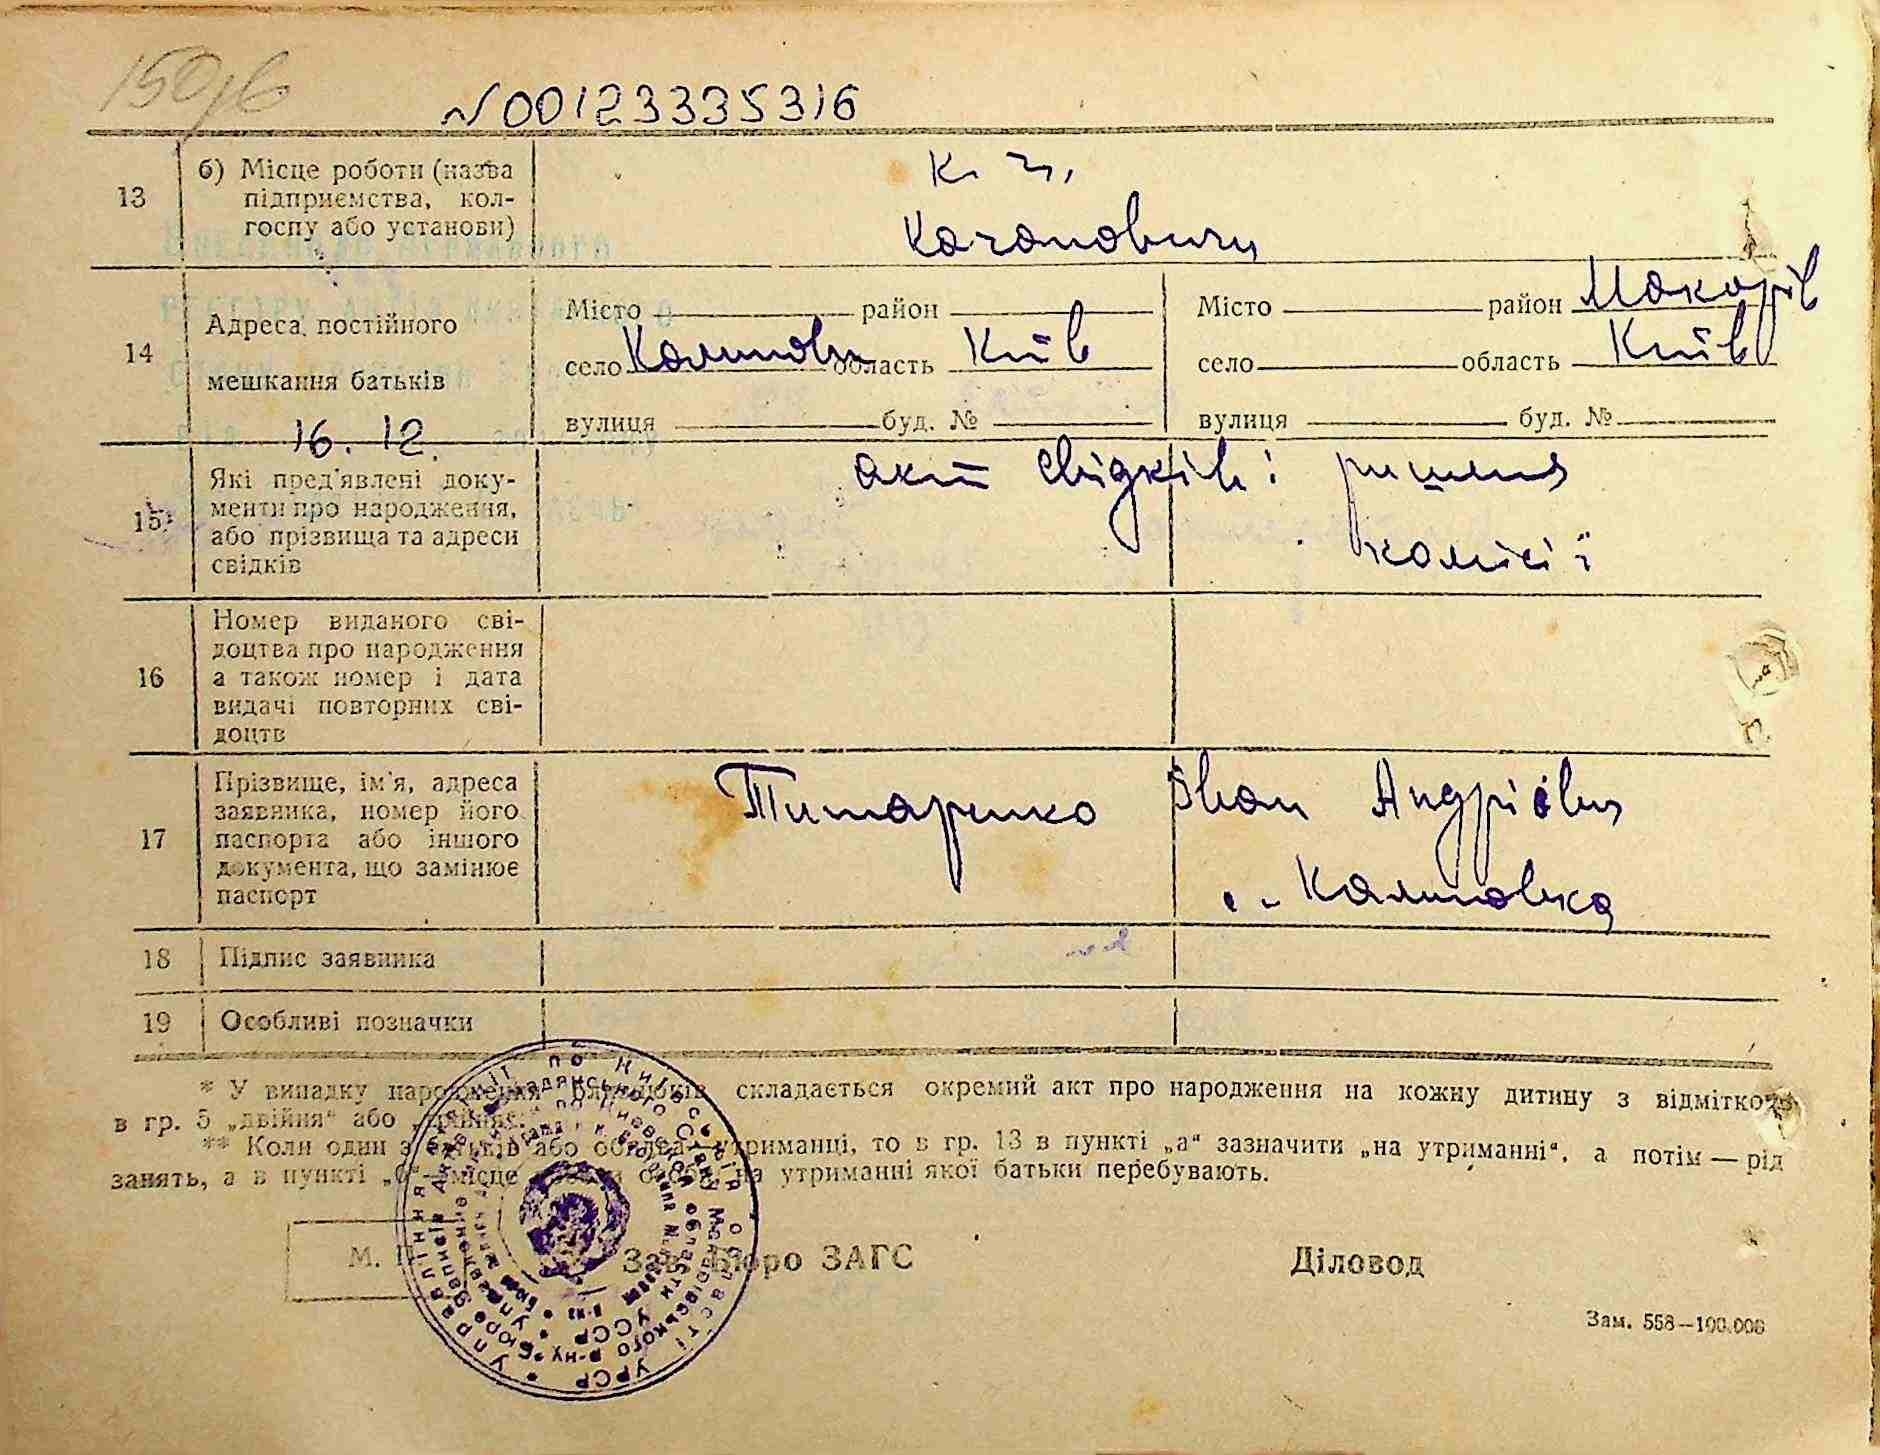 150
N00123335316
13
б) Місце роботи (назва
підприємства, кол-
госпу або установи)
к. г.
Кагановича
14
Адреса постійного
мешкання батьків
16. 12.
Місто район
село Калинови область Київ
вулиця буд. №
Місто район Макарів
село область Київ
вулиця буд. №
15
Які пред'явлені доку-
менти про народження,
або прізвища та адреси
свідків
акт свідків і рішення
комісії
16
Номер виданого сві-
доцтва про народження
а також номер і дата
видачі повторних сві-
доцтв
17
Прізвище, ім'я, адреса
заявника, номер його
паспорта або іншого
документа, що замінює
паспорт
Титаренко Іван Андрієвич
Калиновка
18 Підпис заявника
19 Особливі позначки
* У випадку народження близнюків складається окремий акт про народження на кожну дитину з відміткою
в гр. 5 „двійня“ або „трійня“.
** Коли один з батьків або обидва на утриманні, то в гр. 13 в пункті „а“ зазначити „на утриманні“, а потім — рід
занять, а в пункті „б“ — місце роботи особи, на утриманні якої батьки перебувають.
М. П.
Зав. Бюро ЗАГС
Діловод
Зам. 558—100.000